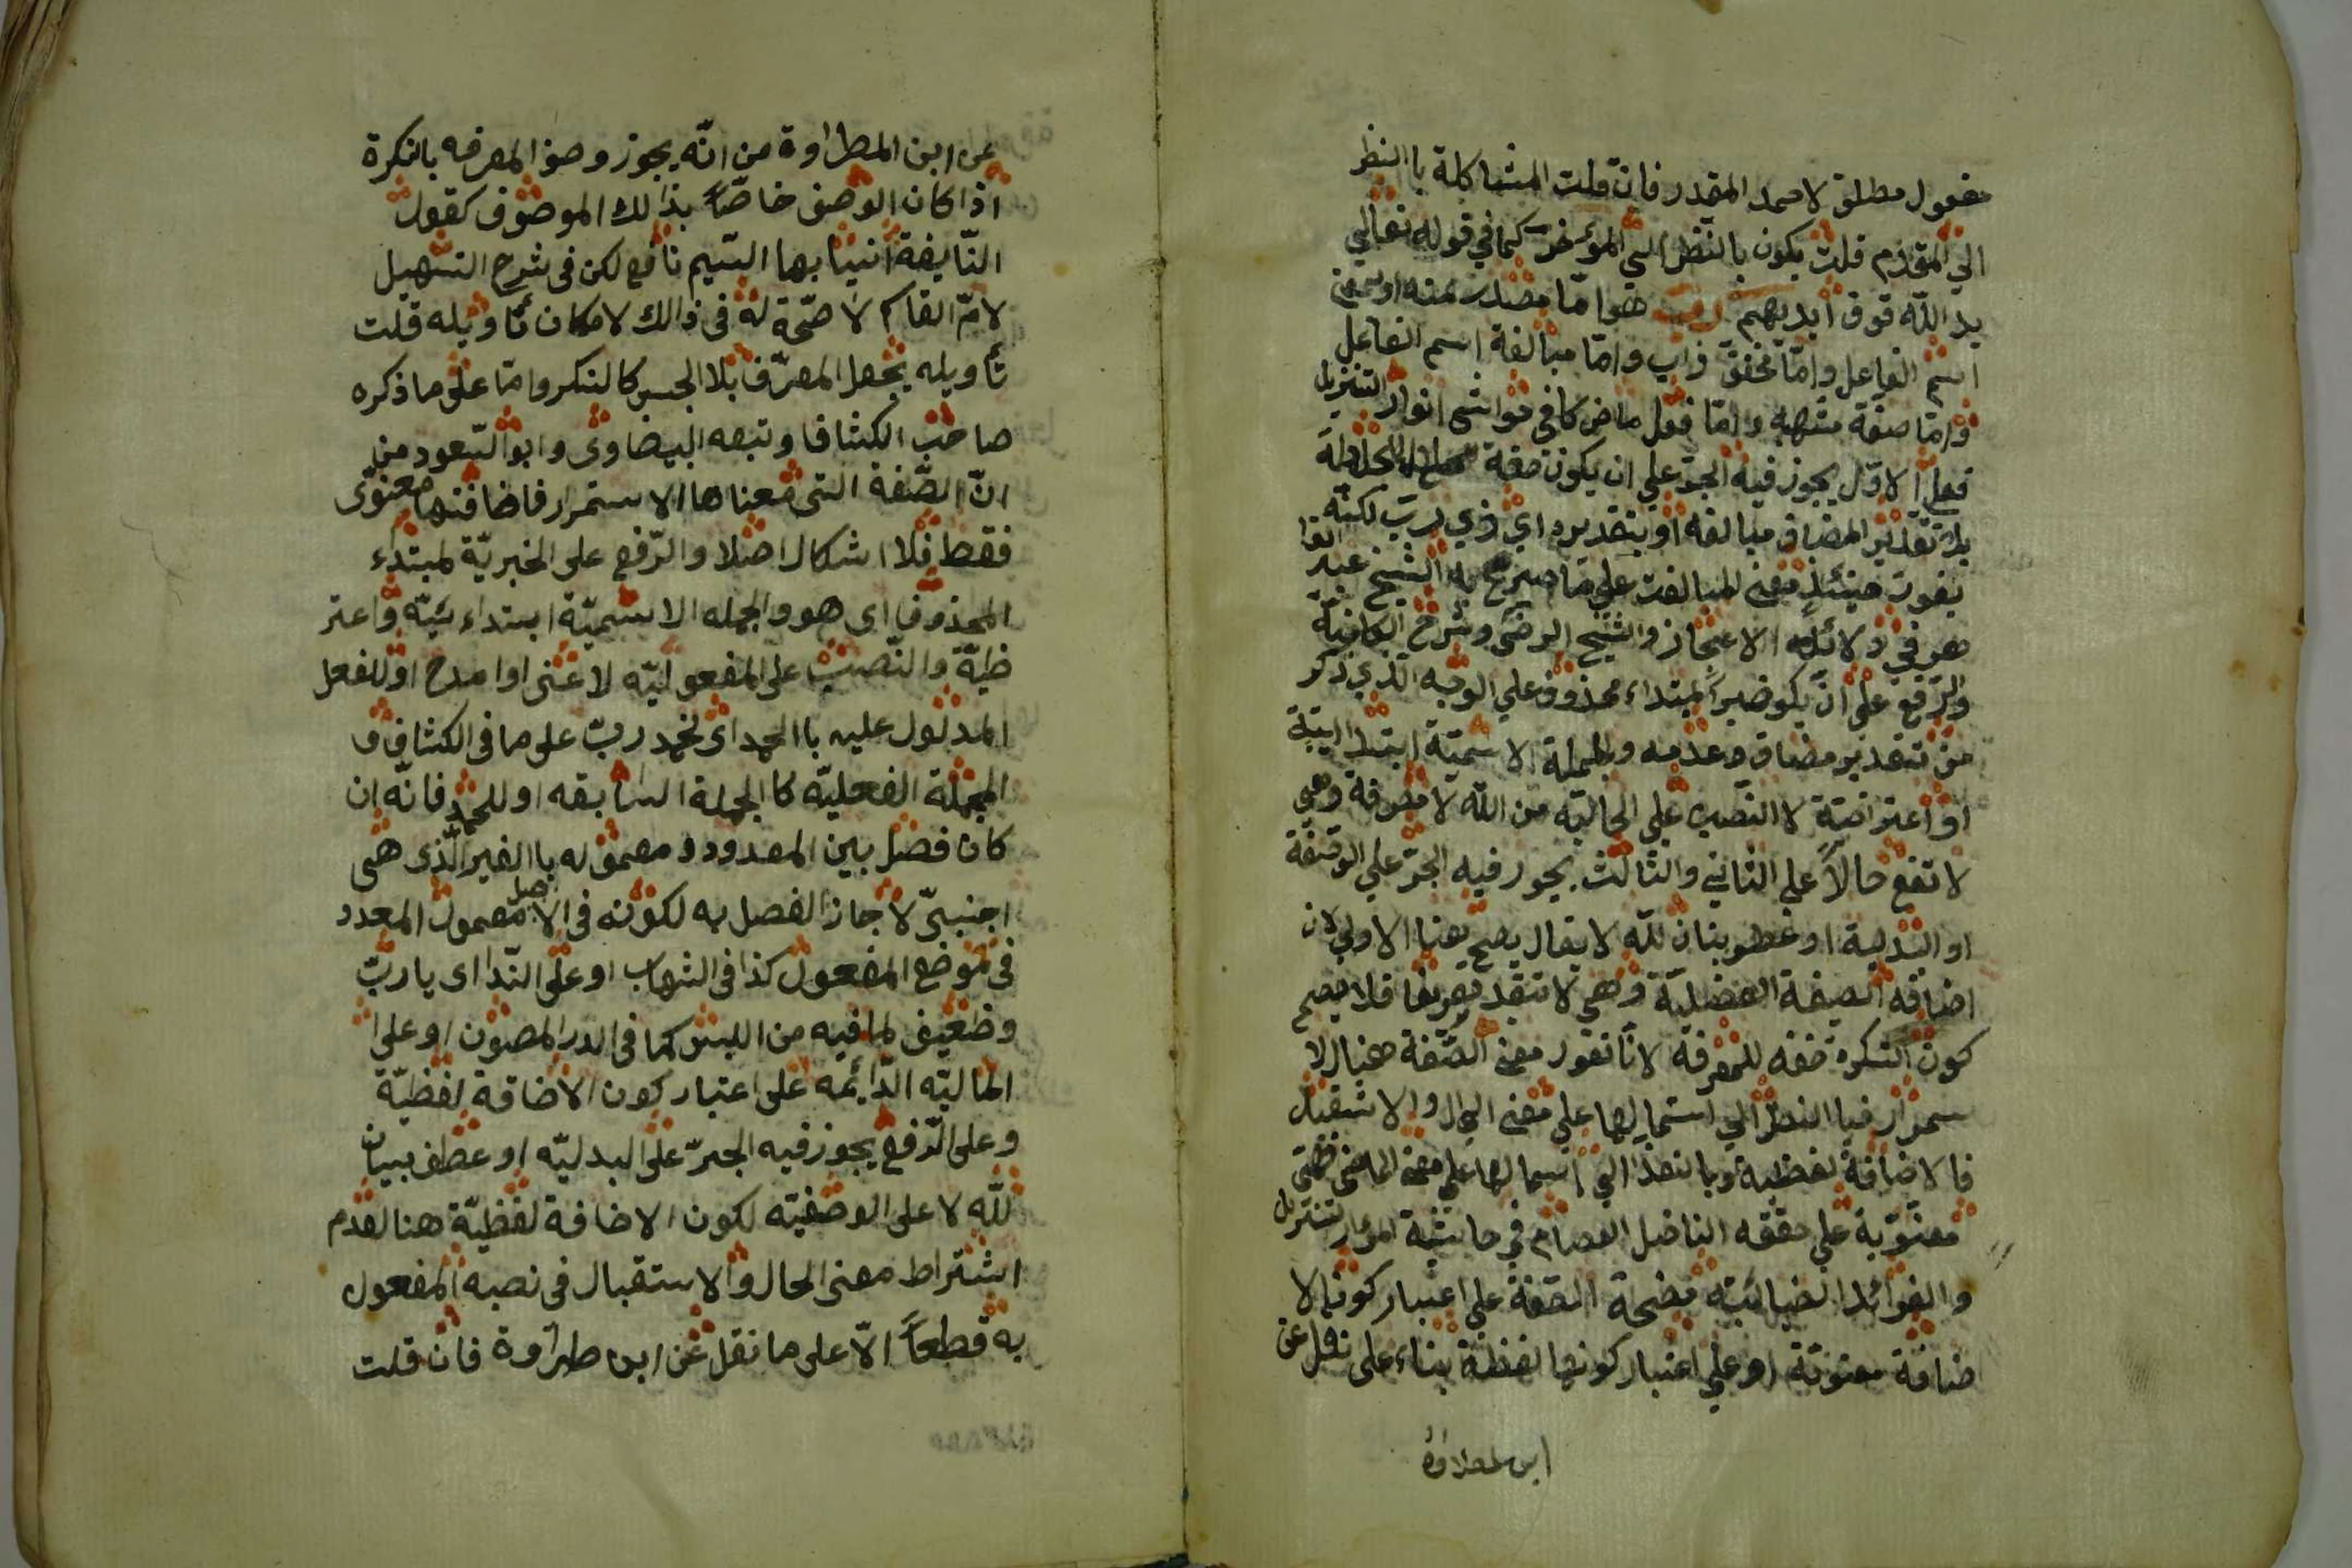 مفعول مطلق لاحمد المقدر فان قلت المشاكلة باالنظر
الي المقدم قلت يكون بالنظر الي المؤخر كما في قوله تعالي
يد الله فوق ايديهم رب هو امّا مصدر بمعني
اسم الفاعل وامّا مخفف رابّ وامّا مبالغة اسم الفاعل
وامّا صفة مشبهه وامّا فعل ماض كما في حواشي انوار التنزيل
فعلي الاوّل يجوز فيه الجرّ علي ان يكون صفة للجلالة
بلا تقدير المضاف مبالغه او بتقديره اي ذي ربّ لكنّه
يفوت حينئذ معني المبالغت علي ما صرح به الشيخ عبد القا
هر في دلائل الاعجاز والشيخ الرضي وشرح الكافيّة
والرّفع علي ان يكو خبراً لمبتداء محذوف علي الوجه الّذي ذكر
من تقدير مضاف وعدمه والجملة الاسميّة ابتدائيّة
او اعتراضيّة لا النّصب علي الحاليّه من اللّه لا معرفة وهي
لا تقع حالاً علي الثاني والثّالث يجوز فيه الجرّ علي الوصفة
او البدلية او عطو بنان للّه لا يقال يصح هنا الاولي لان
اضافة الصفة الفضليّة وهي لا تفد تعريفا فلا يصح
كون النكرة صفه للمعرفه لانّا نقول معني الصّفة هنا الا
ستمرار فباالنظر الي استمالها علي معني الحال والاستقبال
فالاضافة لفظية وبالنظر الي استمالها علي معني الماضي فهي
معنويّة علي حققه الفاضل العصام في حاشية انوار تنزيل
والفوائد الضيائيّه فصحة الصّفة علي اعتبار كون الا
ضافة معنويّة او علي اعتبار كونها لفظة بناء علي نقل عن
ابن لمطراوة
عن ابن المطراوة من انّه يجوز وصف المعرفه بالنكرة
اذا كان الوصف خاصّاً بذالك الموصوف كقول
النّابغة انيابها السّيم ناقع لكن فى شرح التسهيل
لامّ القاسم لا صحّة له فى ذالك لامكان تأويله قلت
تأويله بجعل المعرّف بلا الجنس كالنكر وامّا على ما ذكره
صاحب الكشاف وتبعه البيضاوى وابو السّعود من
انّ الصّفة التى معناها الاستمرار فاضافتها معنوى
فقط فلا اشكال اصلا والرّفع على الخبريّة لمبتداء
المحذوف اى هو والجمله الاسميّة ابتداء ئيّه واعتر
ضيّة والنّصب على المفعوليّه لاعنى او امدح او للفعل
المدلول عليه باالحمد اى نحمد ربّ على ما فى الكشاف ف
الجملة الفعليّه كا الجملة السابقه او للحمد فانّه ان
كان فصل بين المعدود و معموله باالغير الّذى هى
اجنبىّ لا جاز الفصل به لكونه فى الاصل معمول المعدد
فى موضع المفعول كذا فى الشهاب او على النّدا اى يا ربّ
وضعيف لما فيه من اللبس كما فى الدر المصون او على ا
الحاليّه الدّائمه على اعتبار كون الاضافة لفظيّة
وعلى الرّفع يجوز فيه الجرّ على البدليّه او عطف بيان
للّه لا على الوصفيّه لكون الاضافة لفظيّة هنا لعدم
اشتراط معنى الحال والاستقبال فى نصبه المفعول
به قطعاً الّا على ما نقل عن ابن طراوة فان قلت